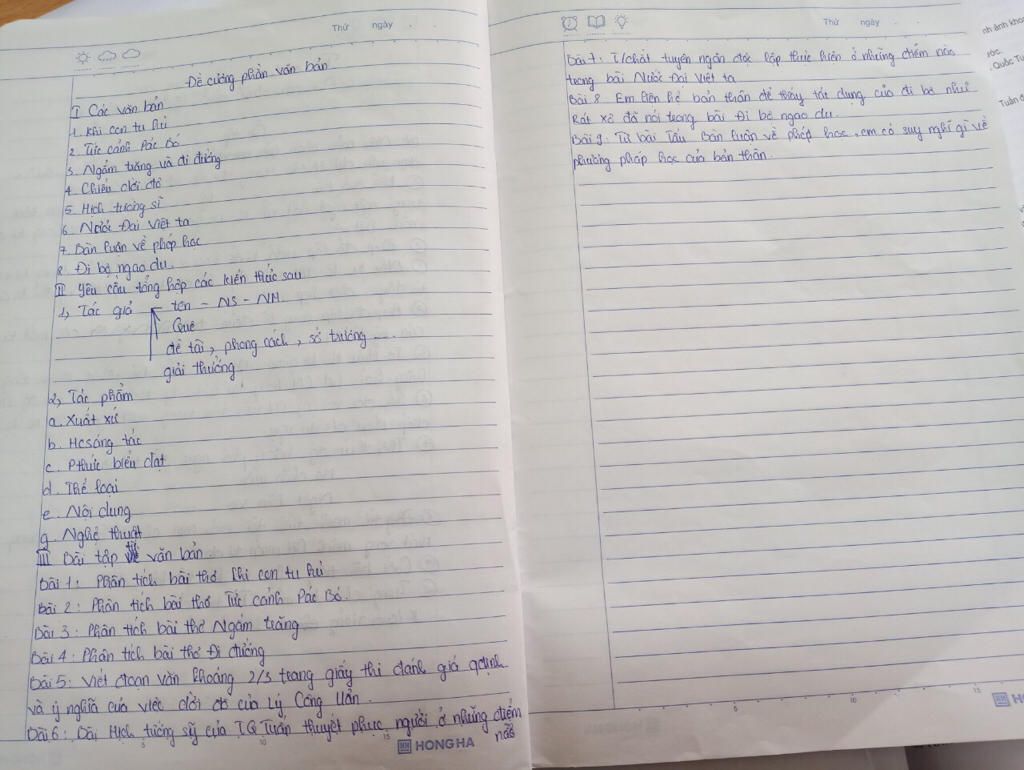 Thứ ngày
Đề cương phần văn bản
I Các văn bản
1. Khi con tu hú
2. Tức cảnh Pác Bó
3. Ngắm trăng và đi đường
4. Chiếu dời đô
5. Hịch tướng sĩ
6. Nước Đại Việt ta
7. Bàn luận về phép học
8. Đi bộ ngao du.
II Yêu cầu tổng hợp các kiến thức sau
1, Tác giả tên - NS - NM.
Quê
đề tài, phong cách, sở trường ....
giải thưởng
2, Tác phẩm
a. Xuất xứ
b. Hcsáng tác
c. Pthức biểu đạt
d. Thể loại
e. Nội dung
g. Nghệ thuật
III Bài tập về văn bản
Bài 1: Phân tích bài thơ Khi con tu hú
Bài 2: Phân tích bài thơ Tức cảnh Pác Bó.
Bài 3: Phân tích bài thơ Ngắm trăng
Bài 4: Phân tích bài thơ Đi đường
Bài 5: Viết đoạn văn khoảng 2/3 trang giấy thi đánh giá qđịnh
và ý nghĩa của việc dời đô của Lý Công Uẩn.
Bài 6: Bài Hịch tướng sỹ của TQ Tuấn thuyết phục người ở những điểm
nào
HONG HA
Thứ ngày
Bài 7: T/chất tuyên ngôn độc lập thực hiện ở những điểm nào
trong bài Nước Đại Việt ta
Bài 8 Em liên hệ bản thân để thấy tác dụng của đi bộ như
Rút xô đã nói trong bài Đi bộ ngao du.
Bài 9: Từ bài tấu Bàn luận về phép học, em có suy nghĩ gì về
phương pháp học của bản thân.
5
10
15
H
nh ảnh kho
ước.
Quốc Tu
Tuần